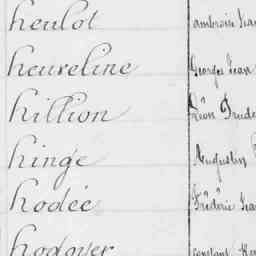 heulot ambroise Jea
heureline Georges Jean
hillion Léon Prude
hinge Augustin
hodée Frédéric Jea
hodoyer constant